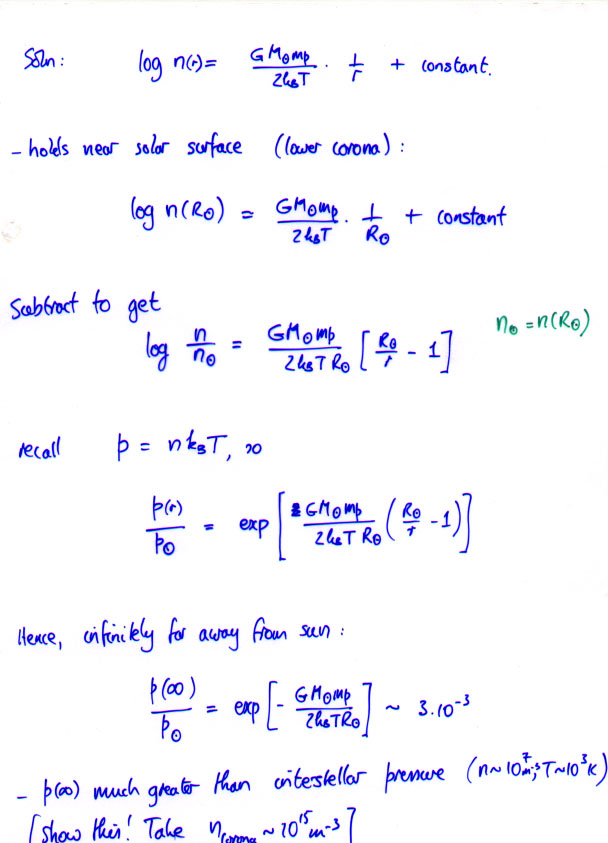 Soln: log n(r) = GM⊙mp/2kBT · 1/r + constant.
- holds near solar surface (lower corona) :
log n(R⊙) = GM⊙mp/2kBT · 1/R⊙ + constant
Subtract to get
log n/n⊙ = GM⊙mp/2kBTR⊙ [R⊙/r - 1] n⊙ = n(R⊙)
recall p = nkBT, so
p(r)/p⊙ = exp[GM⊙mp/2kBTR⊙ (R⊙/r - 1)]
Hence, infinitely far away from sun :
p(∞)/p⊙ = exp[- GM⊙mp/2kBTR⊙] ~ 3.10^-3
- p(∞) much greater than interstellar pressure (n~10^7 m^-3, T~10^3 K)
[show this! Take ncorona ~ 10^15 m^-3]